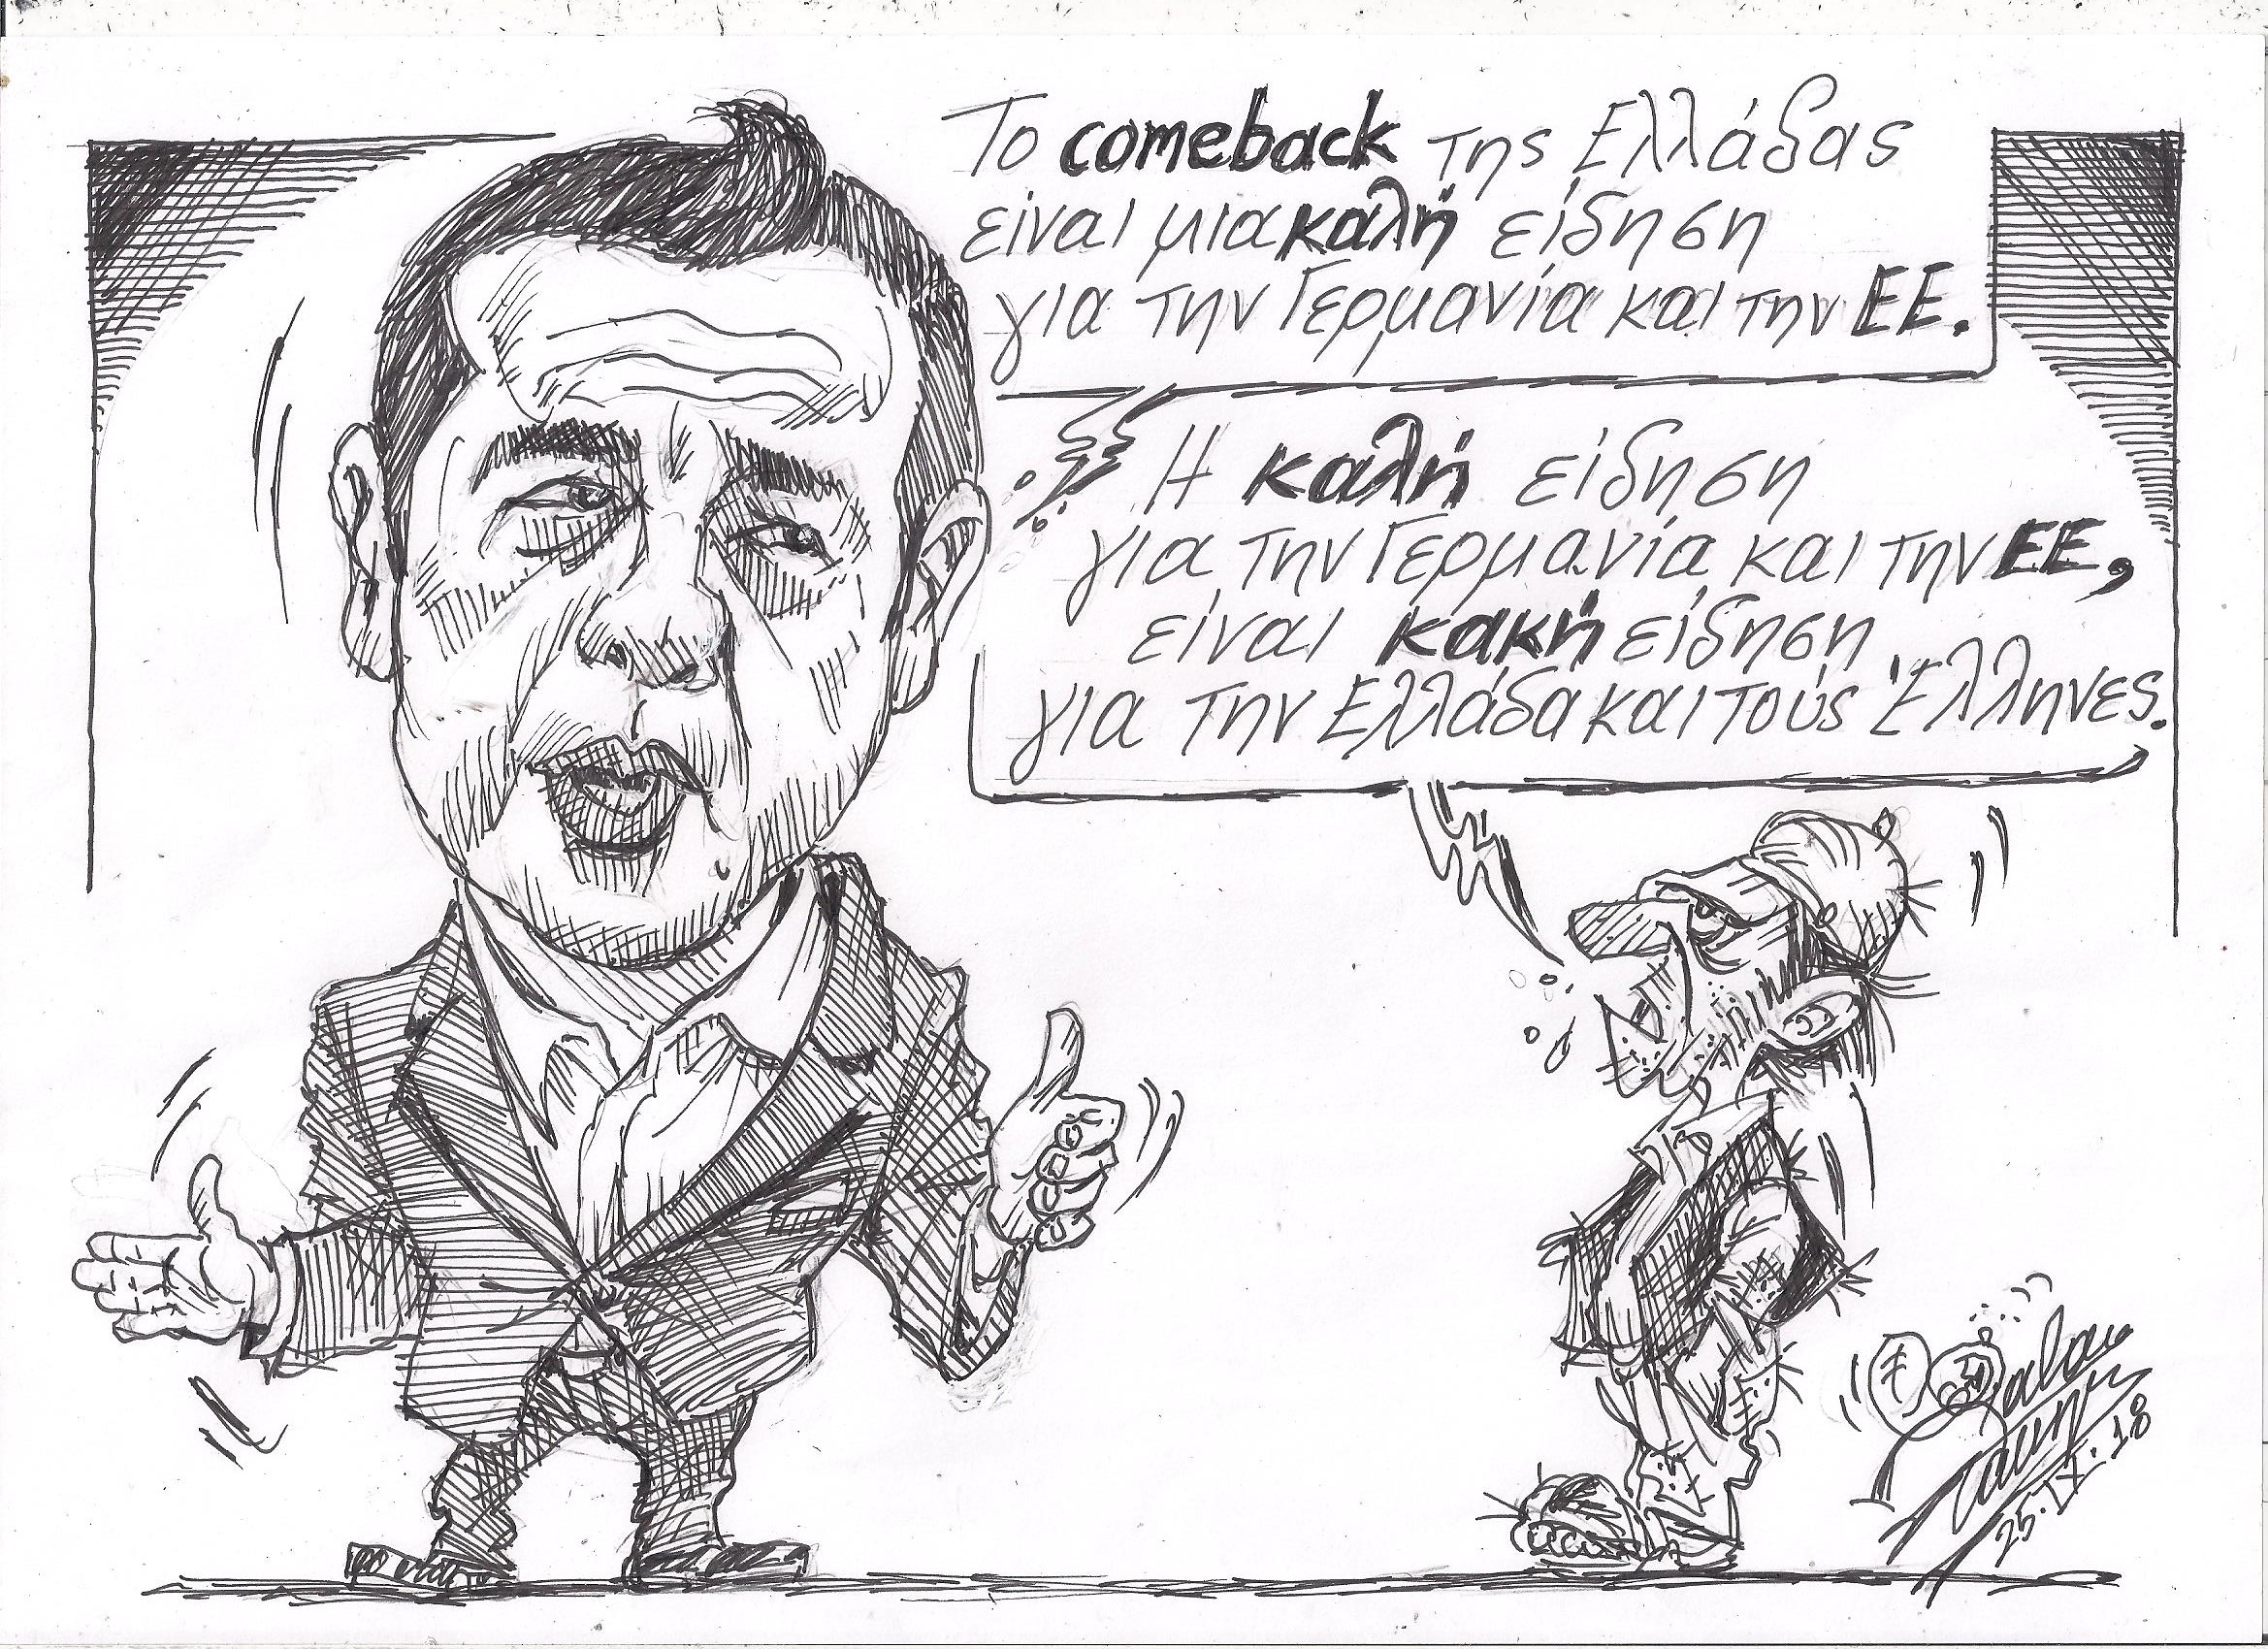 Το comeback της Ελλάδας
είναι μια καλή είδηση
για την Γερμανία και την ΕΕ.
Η καλή είδηση
για την Γερμανία και την ΕΕ,
είναι κακή είδηση
για την Ελλάδα και τούς Έλληνες.
25.IX.18